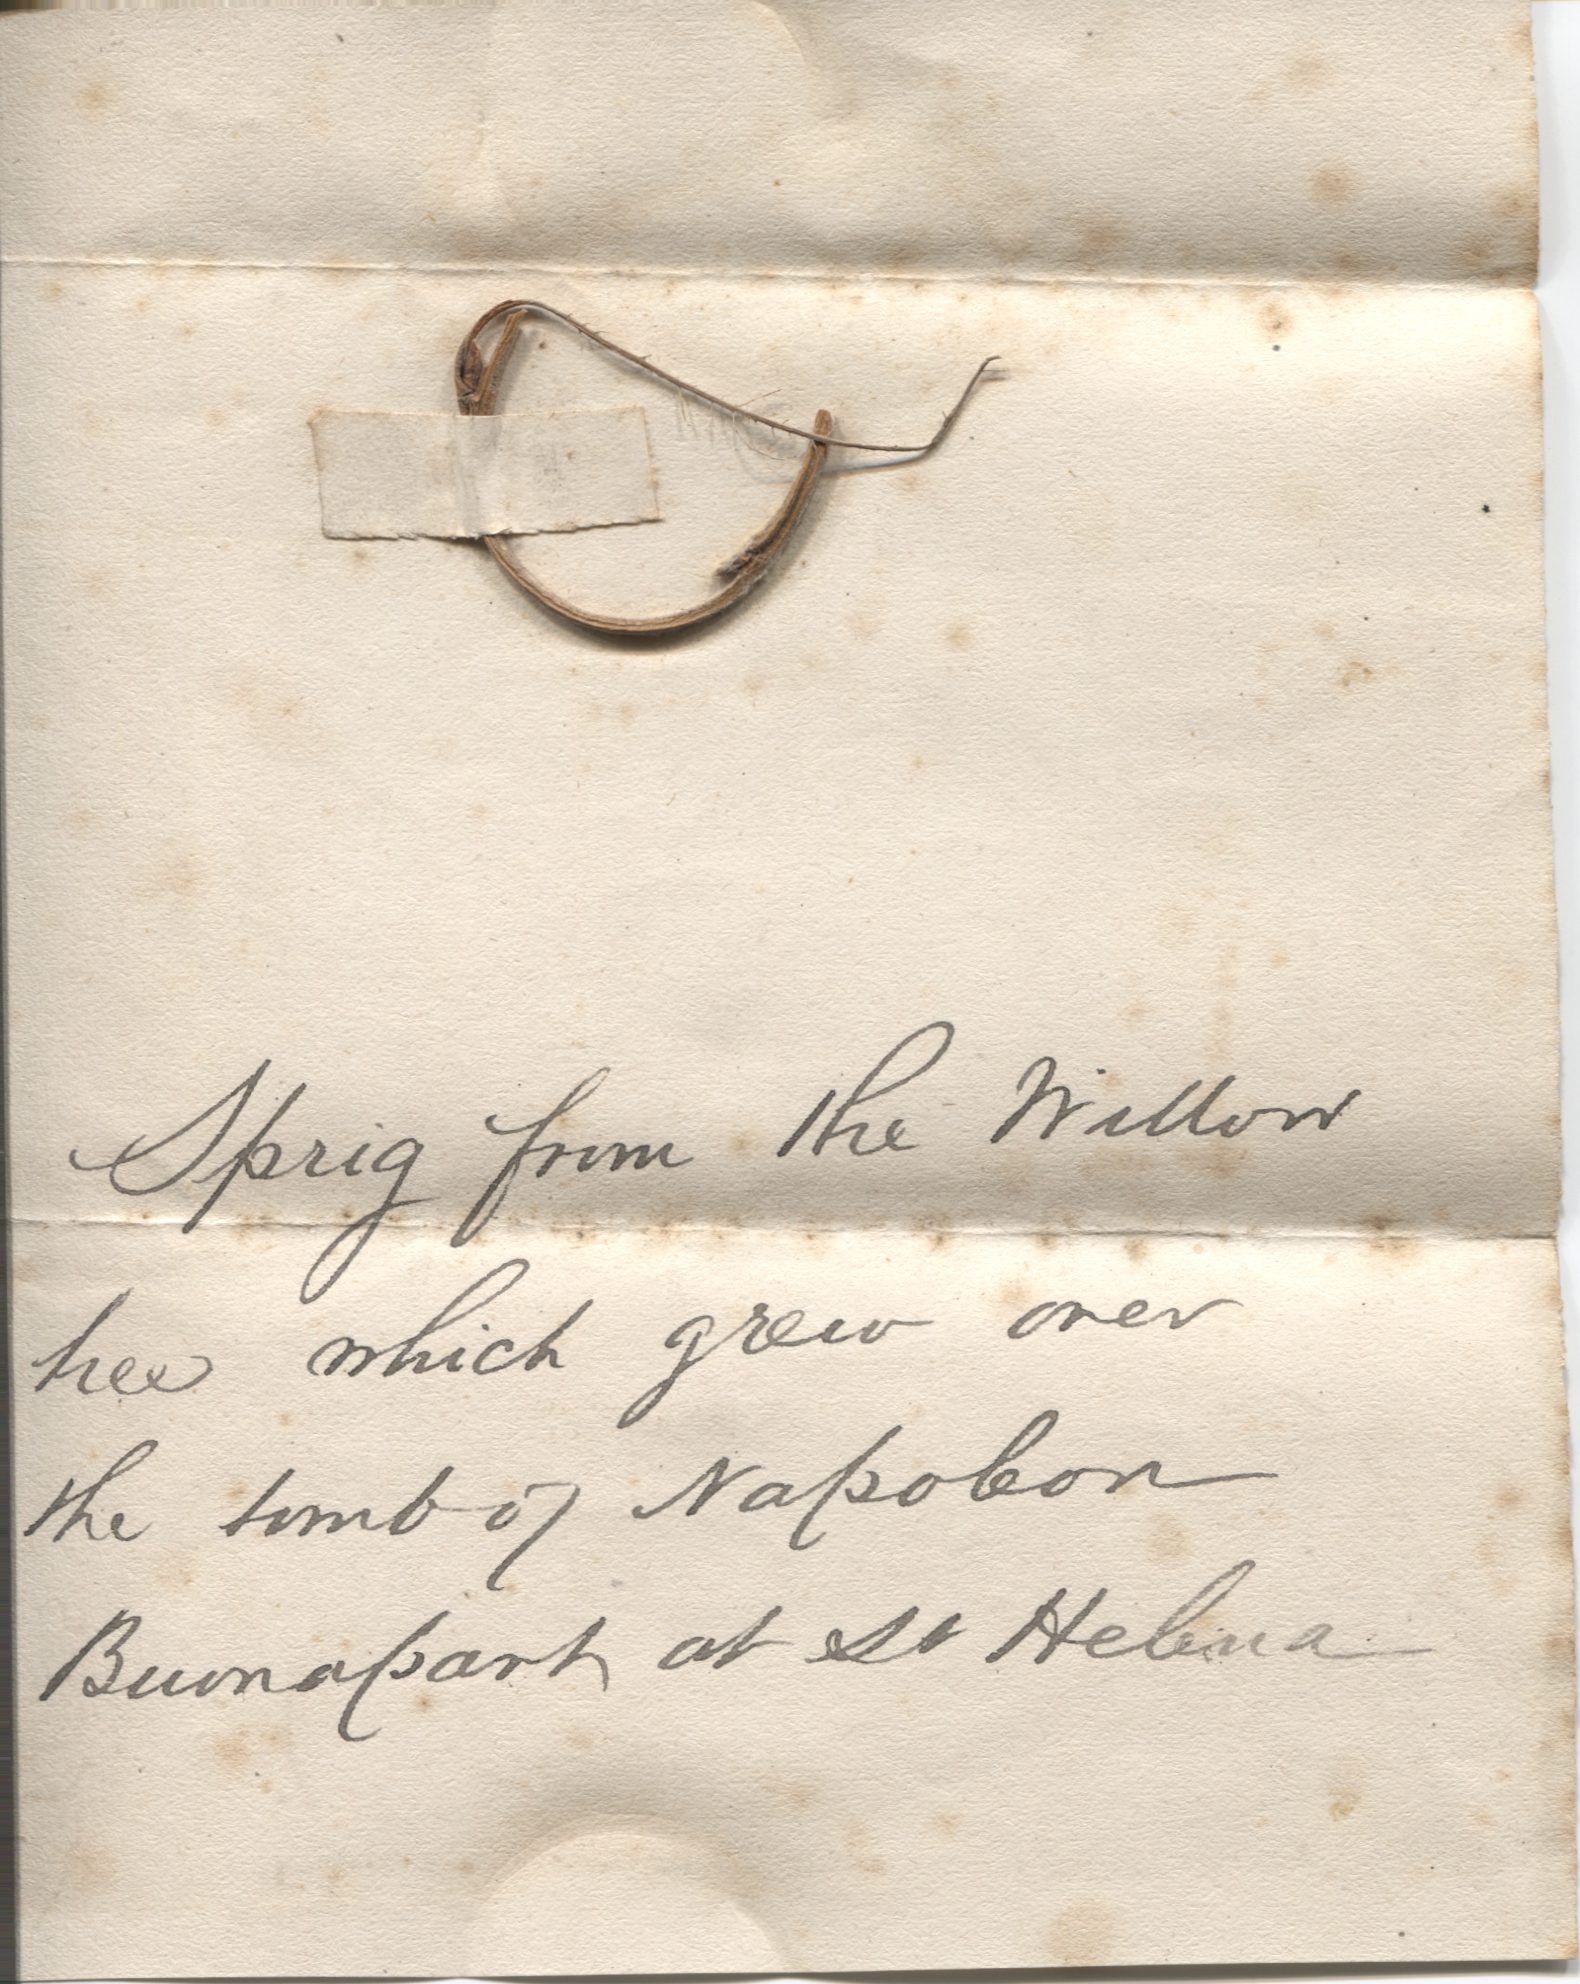 Sprig from the Willow
tree which grew over
the tomb of Napoleon
Buonapart at St Helena